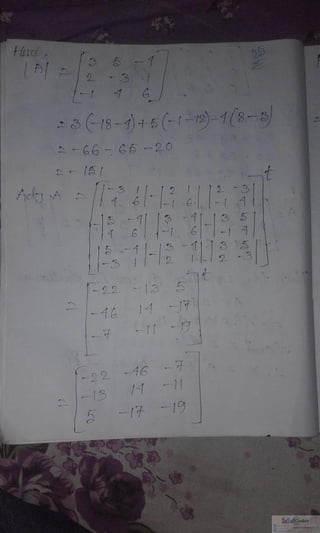 Here,
|A| = [3 5 -4
2 -3 1
-1 4 6]
= 3(-18-4)+5(-1-12)-4(8-3)
= -66-65-20
= -151
Adj.A = [|-3 1 4 6| -|2 1 -1 6| |2 -3 -1 4|
-|5 -4 4 6| |3 -4 -1 6| -|3 5 -1 4|
|5 -4 -3 1| -|3 -4 2 1| |3 5 2 -3|]t
= [-22 -13 5
-46 14 -17
-7 -11 -19]t
= [-22 -46 -7
-13 14 -11
5 -17 -19]